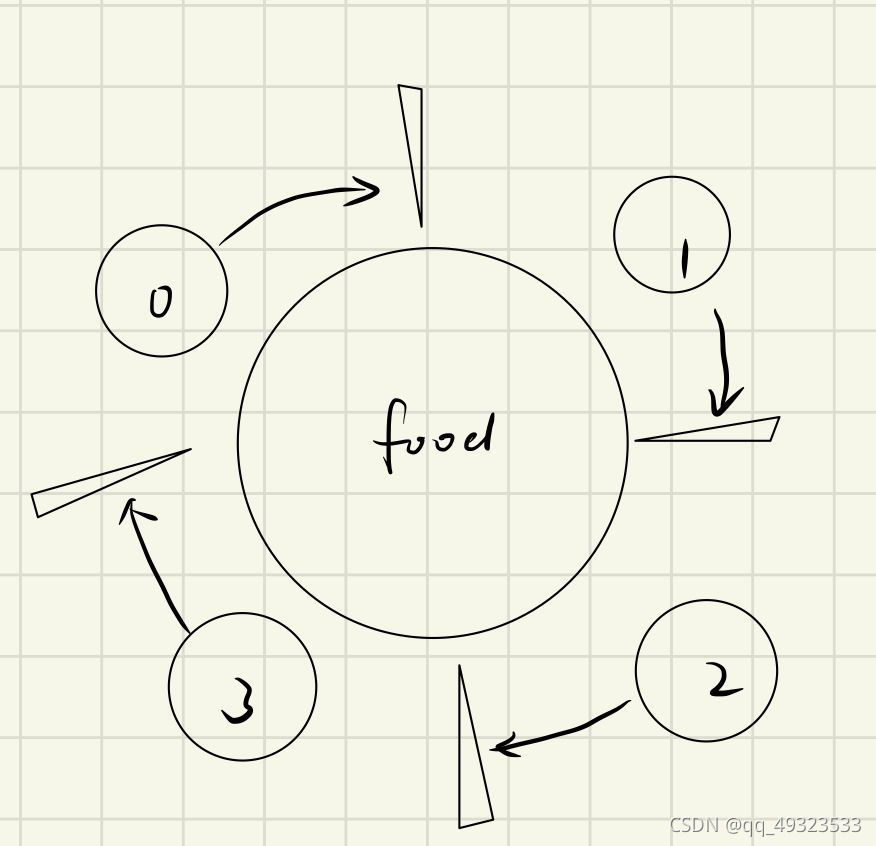 0
1
food
3
2
CSDN @qq_49323533